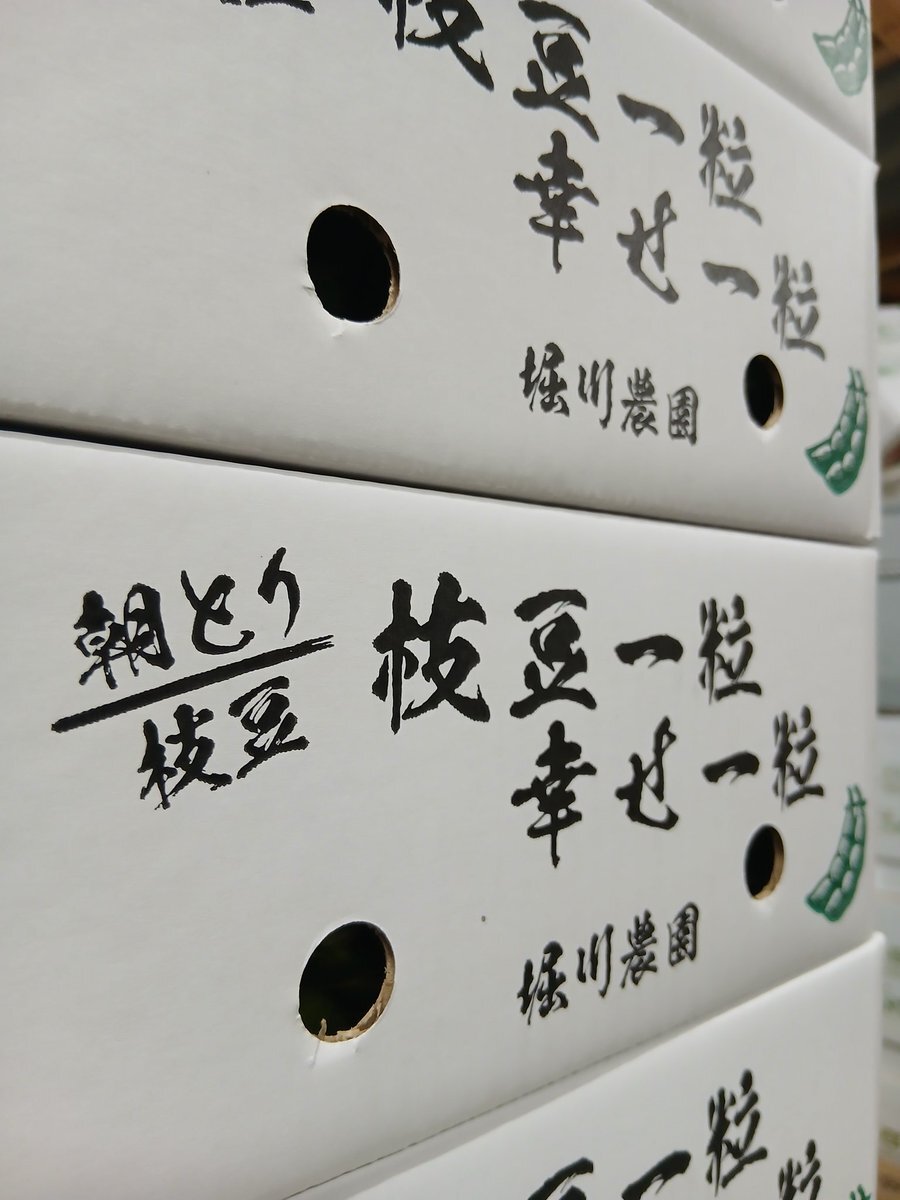 枝豆一粒
幸せ一粒
堀川農園
朝とり
枝豆
枝豆一粒
幸せ一粒
堀川農園
豆一粒
粒